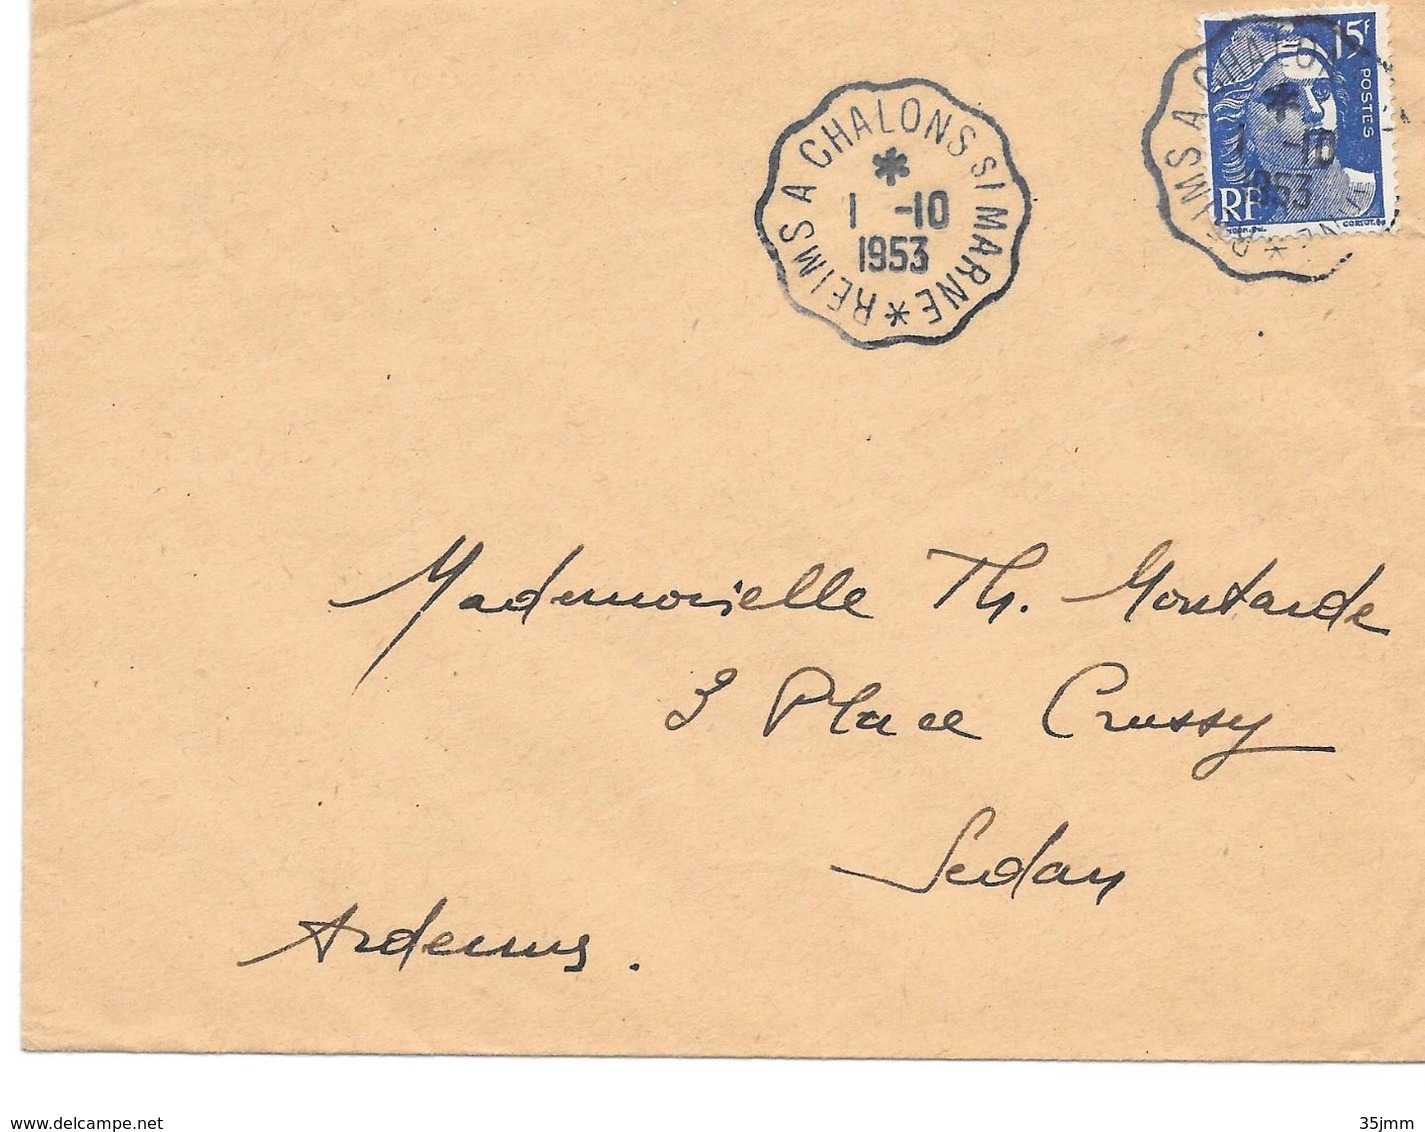 REIMS A CHALONS S/ MARNE *
*
1 -10
1953
15F
POSTES
RF
REIMS A CHALON
*
1 -10
1953
Mademoiselle Th. Montarde
3 Place Crussy
Sedan
Ardennes.
www.delcampe.net
35jmm